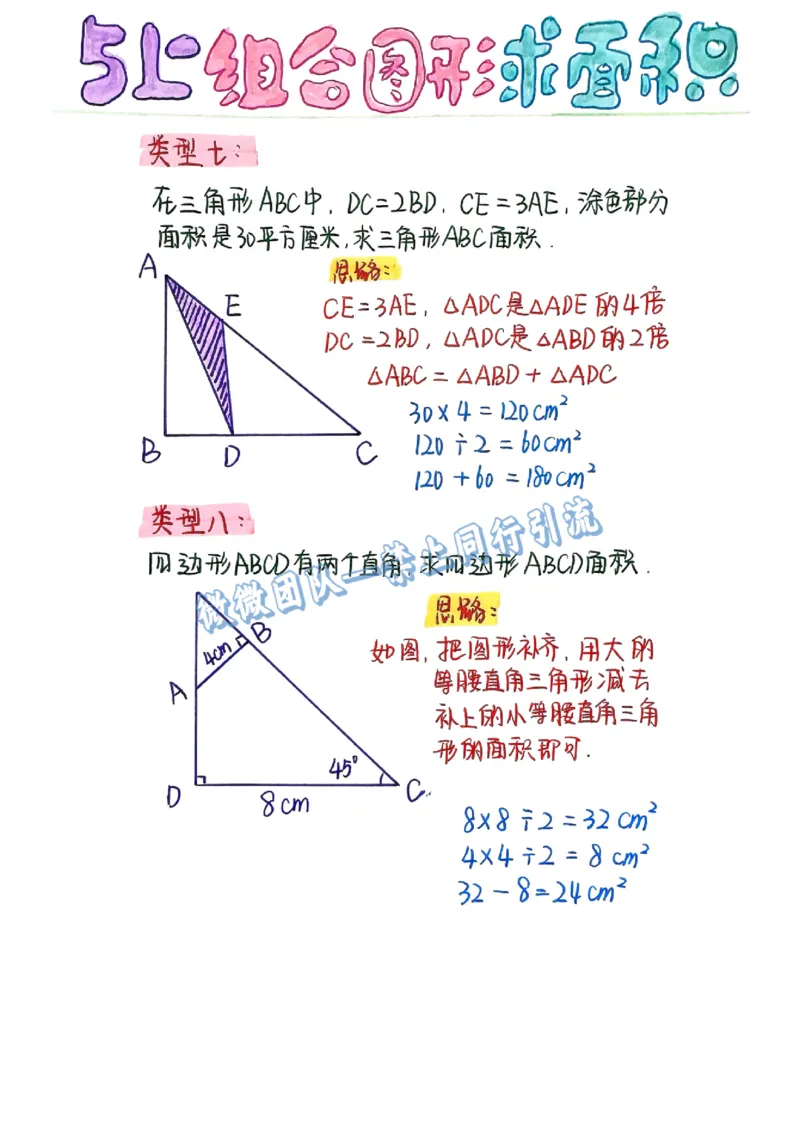 5上组合图形求面积
类型七:
在三角形ABC中, DC=2BD, CE=3AE, 涂色部分
面积是30平方厘米,求三角形ABC面积.
A
E
B
D
C
思路:
CE=3AE, △ADC是△ADE的4倍
DC=2BD, △ADC是△ABD的2倍
△ABC=△ABD+△ADC
30×4=120cm²
120÷2=60cm²
120+60=180cm²
类型八:
四边形ABCD有两个直角,求四边形ABCD面积.
微微团队—禁止同行引流
B
4cm
A
45°
D
8cm
C
思路:
如图,把图形补齐,用大的
等腰直角三角形减去
补上的小等腰直角三角
形的面积即可.
8×8÷2=32cm²
4×4÷2=8cm²
32-8=24cm²